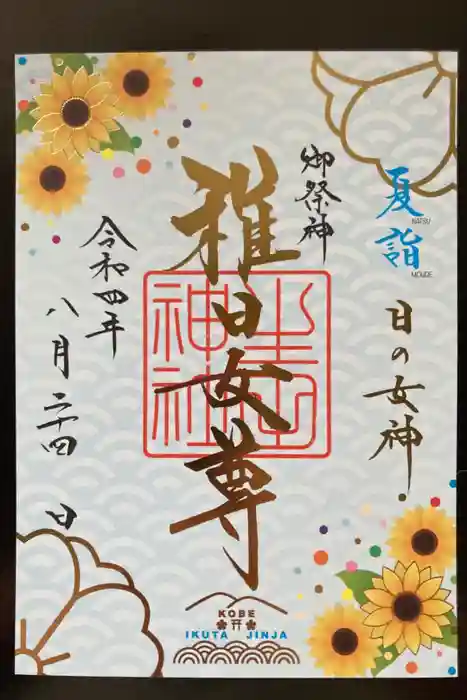 夏詣
NATSU
MOUDE
日の女神
御祭神
稚日女尊
生田神社
令和四年
八月二十四日
KOBE
IKUTA JINJA